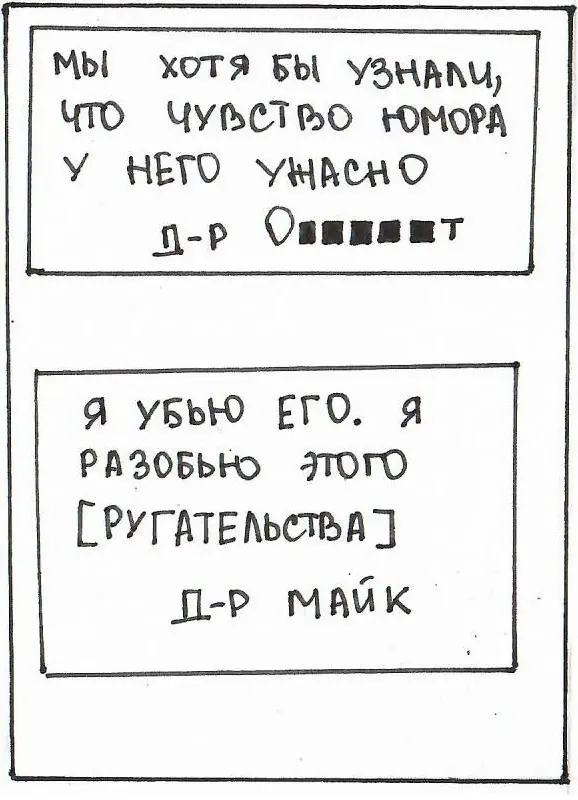 МЫ ХОТЯ БЫ УЗНАЛИ,
ЧТО ЧУВСТВО ЮМОРА
У НЕГО УЖАСНО
Д-Р О■■■■■■Т
Я УБЬЮ ЕГО. Я
РАЗОБЬЮ ЭТОГО
[РУГАТЕЛЬСТВА]
Д-Р МАЙК